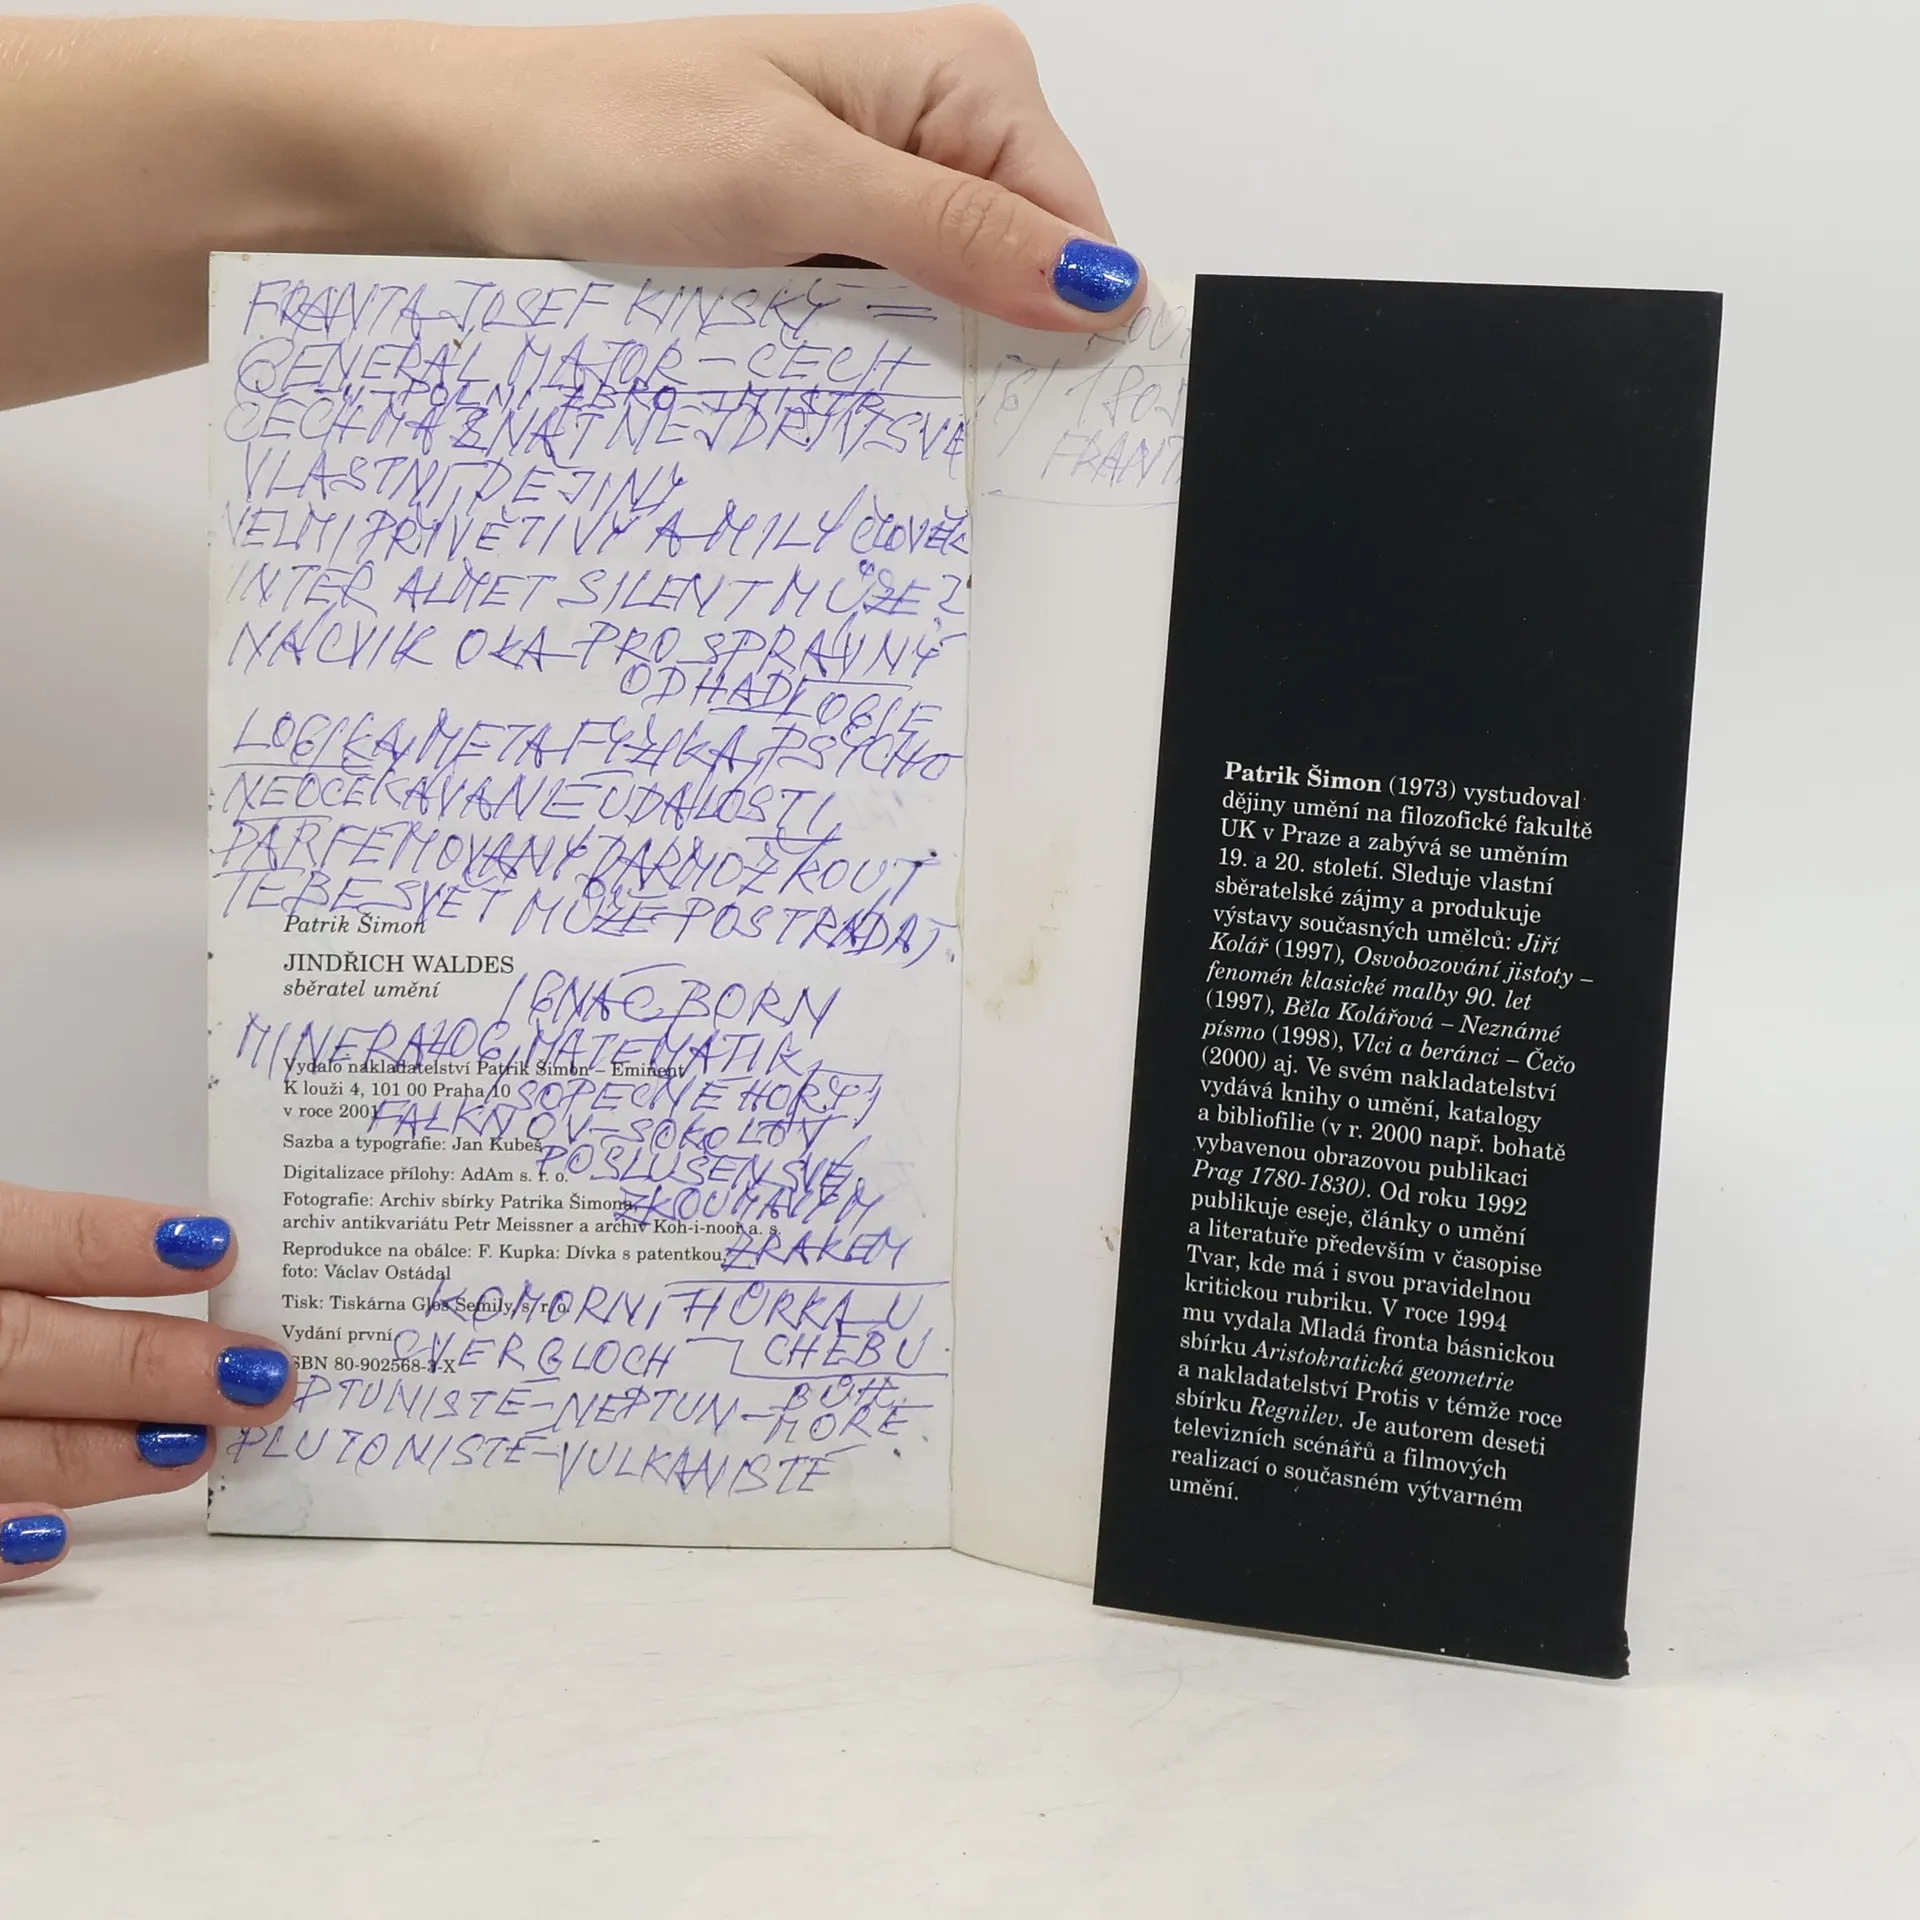 FRANTA JOSEF KINSKÝ =
GENERAL MAJOR – ČECH
POLNÍ ZBROJMISTR
ČECH MÁ ZNÁT NEJDŘÍV SVÉ
VLASTNÍ DĚJINY
VELMI PŘÍVĚTIVÝ A MILÝ ČLOVĚK
INTER SILENT MŮŽE?
NÁCVIK OKA PRO SPRÁVNÝ
ODHAD
LOGIKA, METAFYZIKA, PSYCHO
LOGIE
NEOČEKÁVANÉ UDÁLOSTI,
PARFÉMOVANÝ DARMOŽROUT
TEBE SVĚT MŮŽE POSTRÁDAT.
Patrik Šimon
JINDŘICH WALDES
sběratel umění
IGNÁC BORN
MINERALOG, MATEMATIK,
Vydalo nakladatelství Patrik Šimon – Eminent
K louži 4, 101 00 Praha 10
SOPEČNÉ HORY
v roce 2001
FALKNOV – SOKOLOV
Sazba a typografie: Jan Kubeš
POSLUŠEN SVÉ
Digitalizace přílohy: AdAm s. r. o.
ZKOUMAVÝM
Fotografie: Archiv sbírky Patrika Šimona,
archiv antikvariátu Petr Meissner a archiv Koh-i-noor a. s.
ZRAKEM
Reprodukce na obálce: F. Kupka: Dívka s patentkou,
foto: Václav Ostádal
KOMORNÍ HŮRKA U
CHEBU
Tisk: Tiskárna Glos Semily, s. r. o.
Vydání první
ISBN 80-902568-3-X
PTUNISTÉ – NEPTUN – BŮH
MOŘE
PLUTONISTÉ – VULKANISTÉ
FRANT
Patrik Šimon (1973) vystudoval
dějiny umění na filozofické fakultě
UK v Praze a zabývá se uměním
19. a 20. století. Sleduje vlastní
sběratelské zájmy a produkuje
výstavy současných umělců: Jiří
Kolář (1997), Osvobozování jistoty –
fenomén klasické malby 90. let
(1997), Běla Kolářová – Neznámé
písmo (1998), Vlci a beránci – Čečo
(2000) aj. Ve svém nakladatelství
vydává knihy o umění, katalogy
a bibliofilie (v r. 2000 např. bohatě
vybavenou obrazovou publikaci
Prag 1780-1830). Od roku 1992
publikuje eseje, články o umění
a literatuře především v časopise
Tvar, kde má i svou pravidelnou
kritickou rubriku. V roce 1994
mu vydala Mladá fronta básnickou
sbírku Aristokratická geometrie
a nakladatelství Protis v témže roce
sbírku Regnilev. Je autorem deseti
televizních scénářů a filmových
realizací o současném výtvarném
umění.